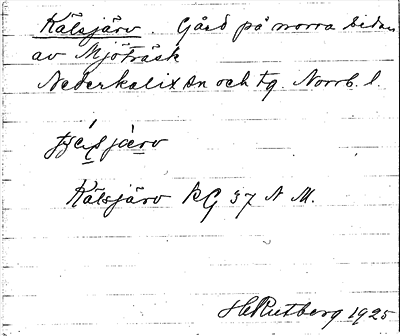 Kälsjärv. Gård på norra sidan
av Mjöträsk
Nederkalix sn och tg. Norrb. l.
Kälsjärv RG 37 N M.
H Rutberg 1925